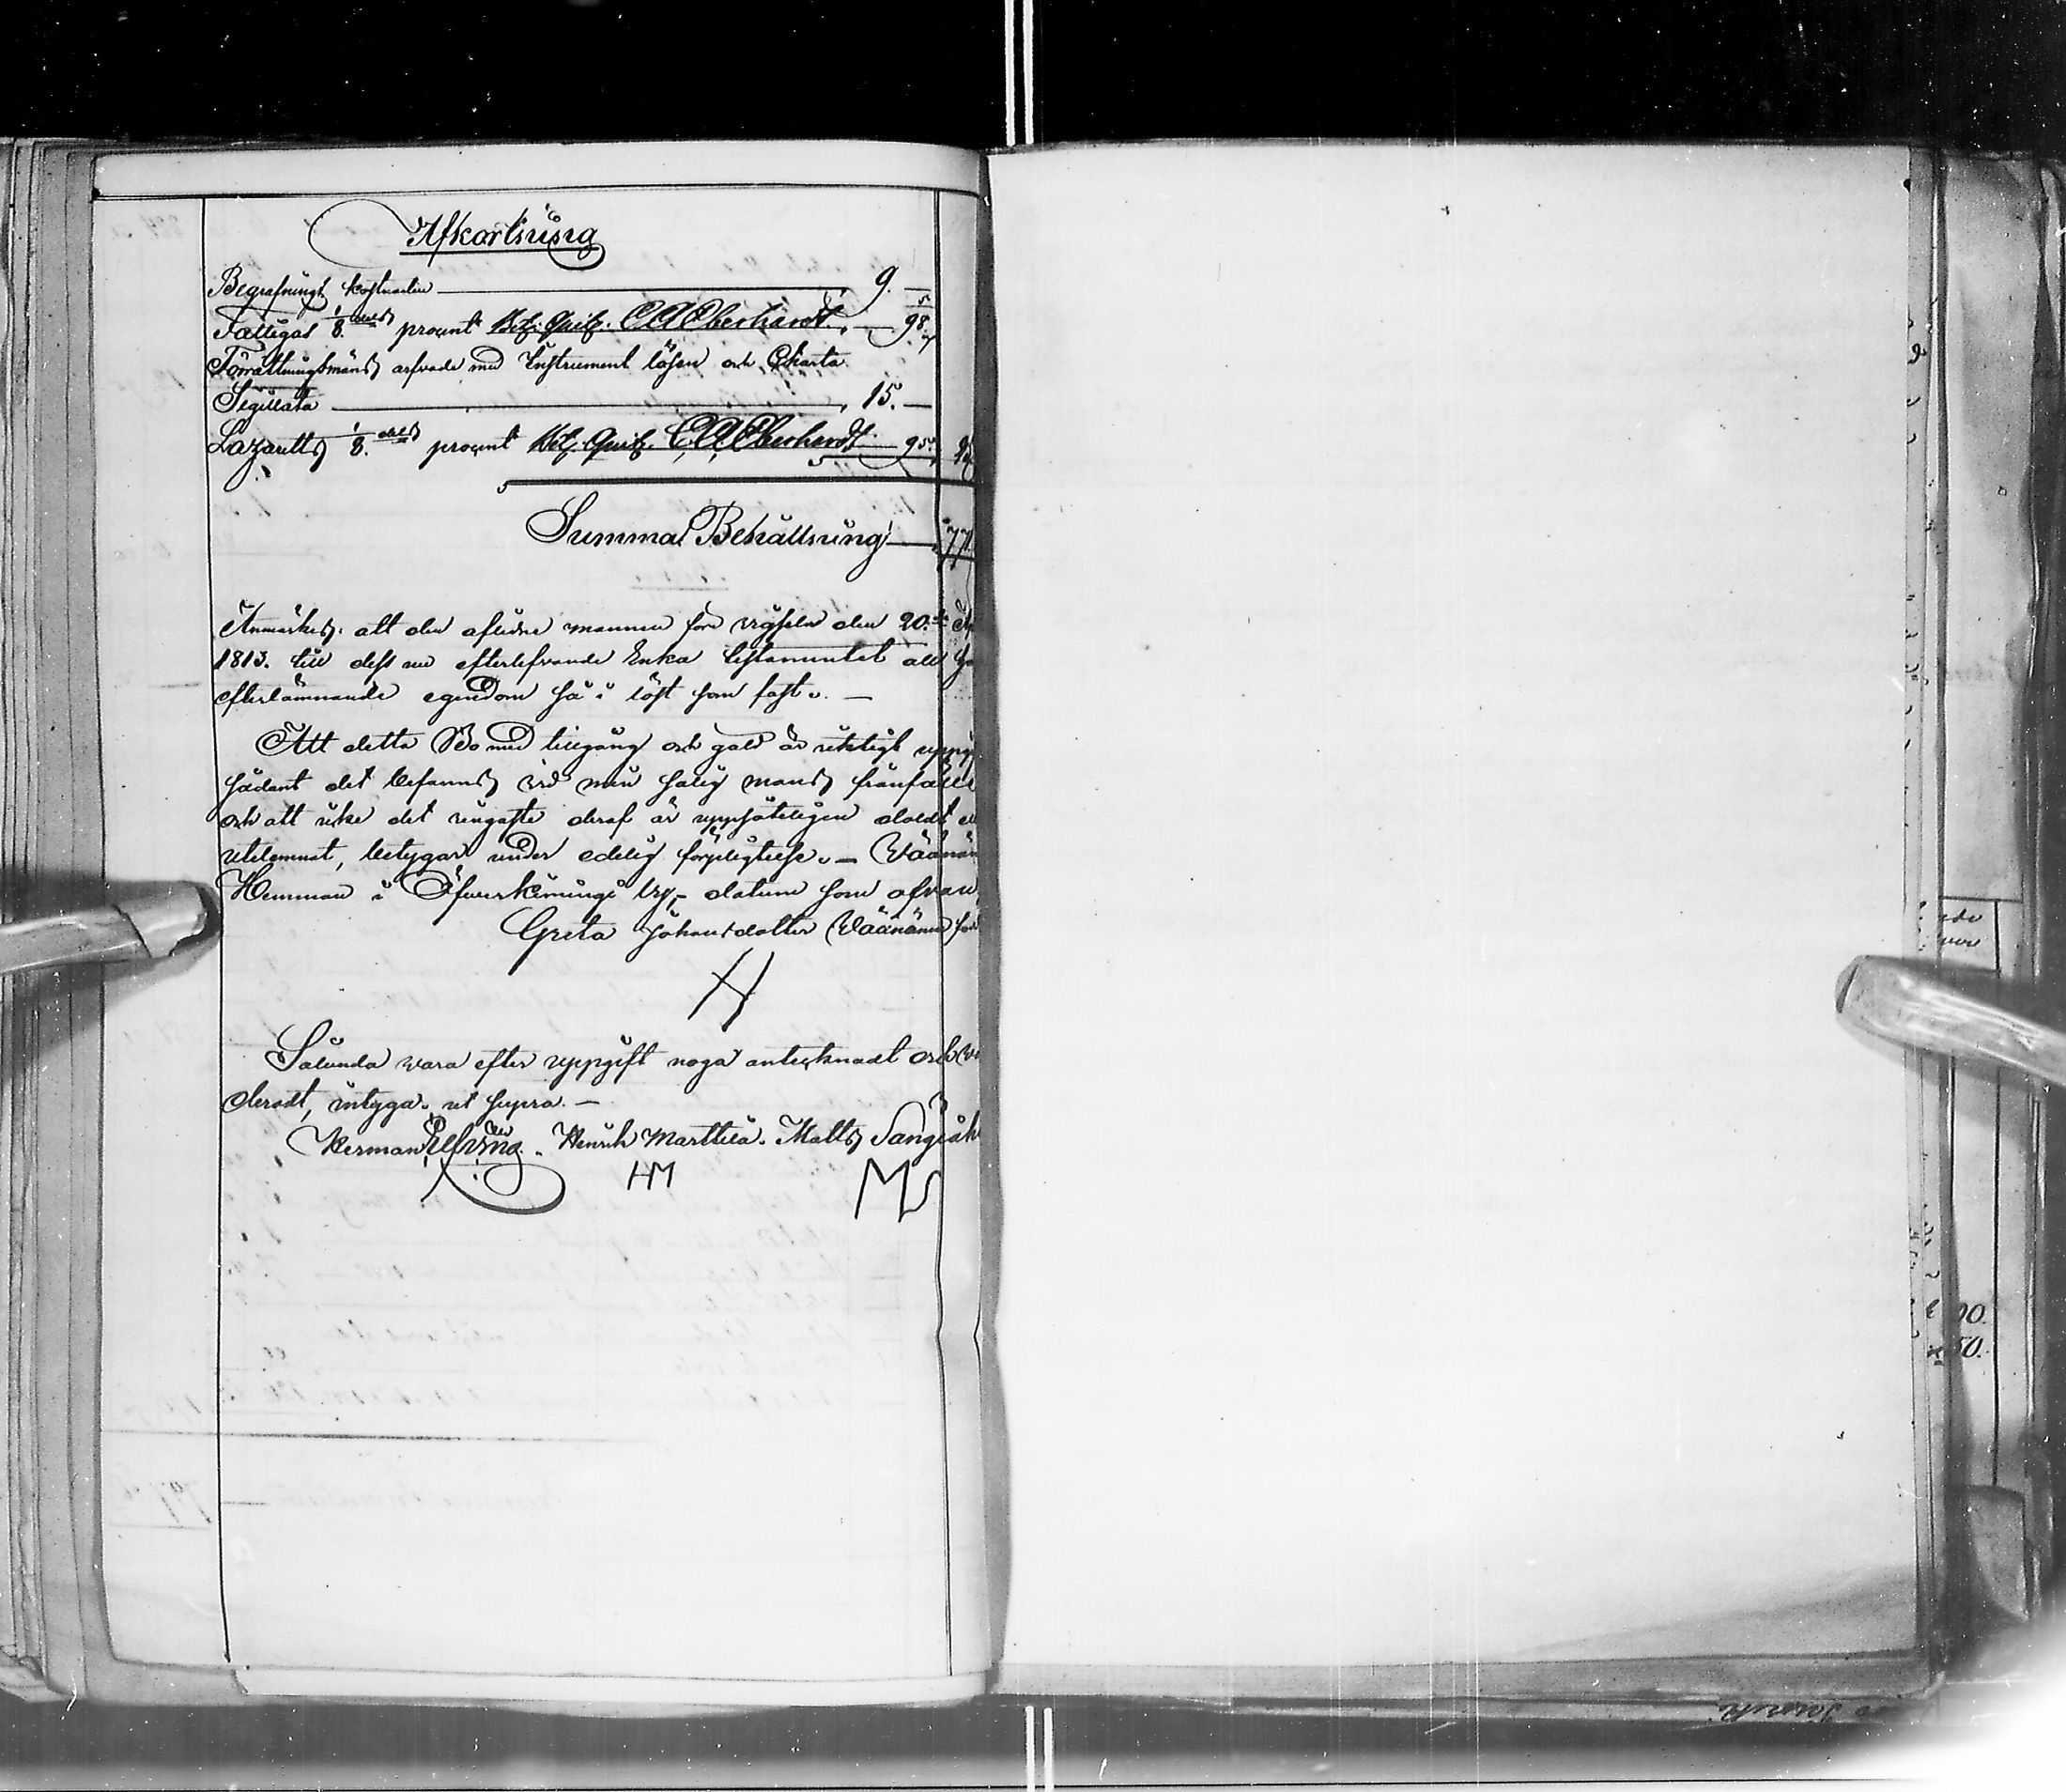 Afkortning
Begrafnings kostnaden 9.
Fattigas 1/8 dels procent Bet. Quit. C A Eberhardt 98.
Förrättningsmäns arfvode med Instrument lösen och Charta
Sigillata 15.
Lazaretts 1/8 dels procent Bet. Quit. C A Eberhardt 95.
Summa Behållning 77
Anmärkes att den aflidne mannen före vigseln den 20.de
1813. till dess nu efterlefvande Enka testamentet all
efterlämnande egendom så i löst som fast. —
Att detta Bo med tillgång och gäld är riktigt uppg
sådant det befanns vid min salig mans frånfälle
och att icke det ringaste deraf är uppsåteligen doldt
utelemnat, betygar under edelig förpligtelse. — Väänän
Hemman i Öfverkiminge by, datum som ofvan
Greta Johansdotter Väänänen
H
Sålunda vara efter uppgift noga antecknadt och vä
deradt, intyga, ut supra. —
Herman Henrik Marttila. Matts Sangi
HM MS
00.
50.